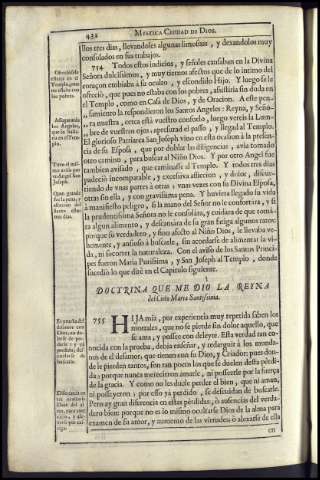 432 MYSTICA CIUDAD DE DIOS.
llos tres dias, llevandoles algunas limosnas, y dexandolos muy
consolados en sus trabajos.
754 Todos estos indicios, y señales causaban en la Divina
Señora dulcissimos, y muy tiernos afectos que de lo intimo del
coraçon embiaba à su oculto, y escondido Hijo. Y luego se le
ofreciò, que pues no estaba con los pobres, assistiria sin duda en
el Templo, como en Casa de Dios, y de Oracion. A este pen-
samiento la respondieron los Santos Angeles: Reyna, y Seño-
ra nuestra, cerca està vuestro consuelo, luego vereis la Lum-
bre de vuestros ojos; apresurad el passo, y llegad al Templo.
El glorioso Patriarca San Joseph vino en esta ocasion à la presen-
cia de su Esposa, que por doblar las diligencias, avia tomado
otro camino, para buscar al Niño Dios. Y por otro Angel fue
tambien avisado, que caminasse al Templo. Y todos tres dias
padeciò incomparable, y excessiva afliccion, y dolor, discur-
riendo de unas partes à otras; unas vezes con su Divina Esposa,
otras sin ella, y con gravissima pena. Y huviera llegado su vida
à manifiesto peligro, si la mano del Señor no le confortàra, y si
la prudentissima Señora no le consolàra, y cuidara de que tomàra
algun alimento, y descansàra de su gran fatiga algunos ratos:
porque su verdadero, y fino afecto al Niño Dios, le llevaba ve-
hemente, y ansioso à buscarle, sin acordarse de alimentar la vi-
da, ni socorrer la naturaleza. Con el aviso de los Santos Princi-
pes fueron Maria Purissima, y San Joseph al Templo, donde
sucediò lo que dirè en el Capitulo siguiente.
DOCTRINA QUE ME DIO LA REYNA
del Cielo Maria Santissima.
755 HIJA mia, por experiencia muy repetida saben los
mortales, que no se pierde sin dolor aquello, que
se ama, y possee con deleyte. Esta verdad tan co-
nocida con la prueba, debia enseñar, y redarguir à los munda-
nos de el desamor, que tienen con su Dios, y Criador; pues don-
de le pierden tantos, son tan pocos los que se duelen desta perdi-
da; porque nunca merecieron amarle, ni posseerle por la fuerça
de la gracia. Y como no les duele perder el bien, que ni aman,
ni posseyeron; por esso ya perdido, se descuidan de buscarle.
Pero ay gran diferencia en estas perdidas, ò ausencias del verda-
dero bien: porque no es lo mismo ocultarse Dios de la alma para
examen de su amor, y aumento de las virtudes; ò alexarse de ella
en